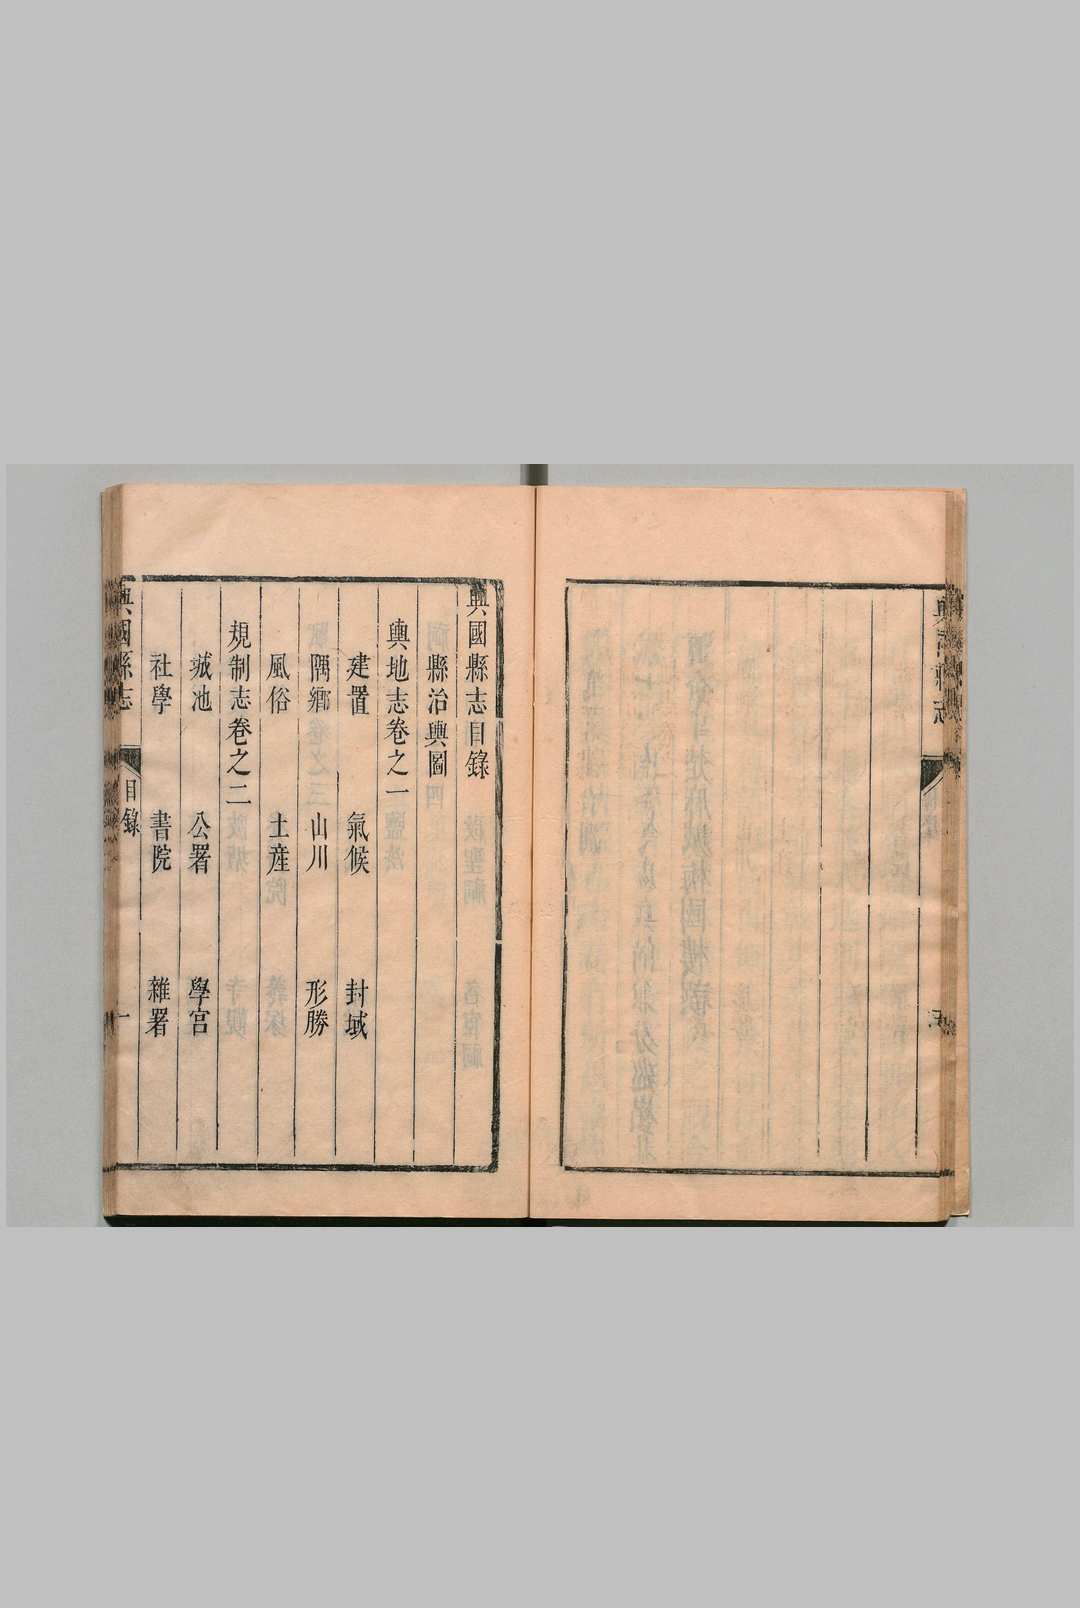 興國縣志
興國縣志目錄
縣治輿圖
輿地志卷之一
建置　氣候　封域
隅鄉　山川　形勝
風俗　土產
規制志卷之二
城池　公署　學宮
社學　書院　雜署
興國縣志　目錄　一